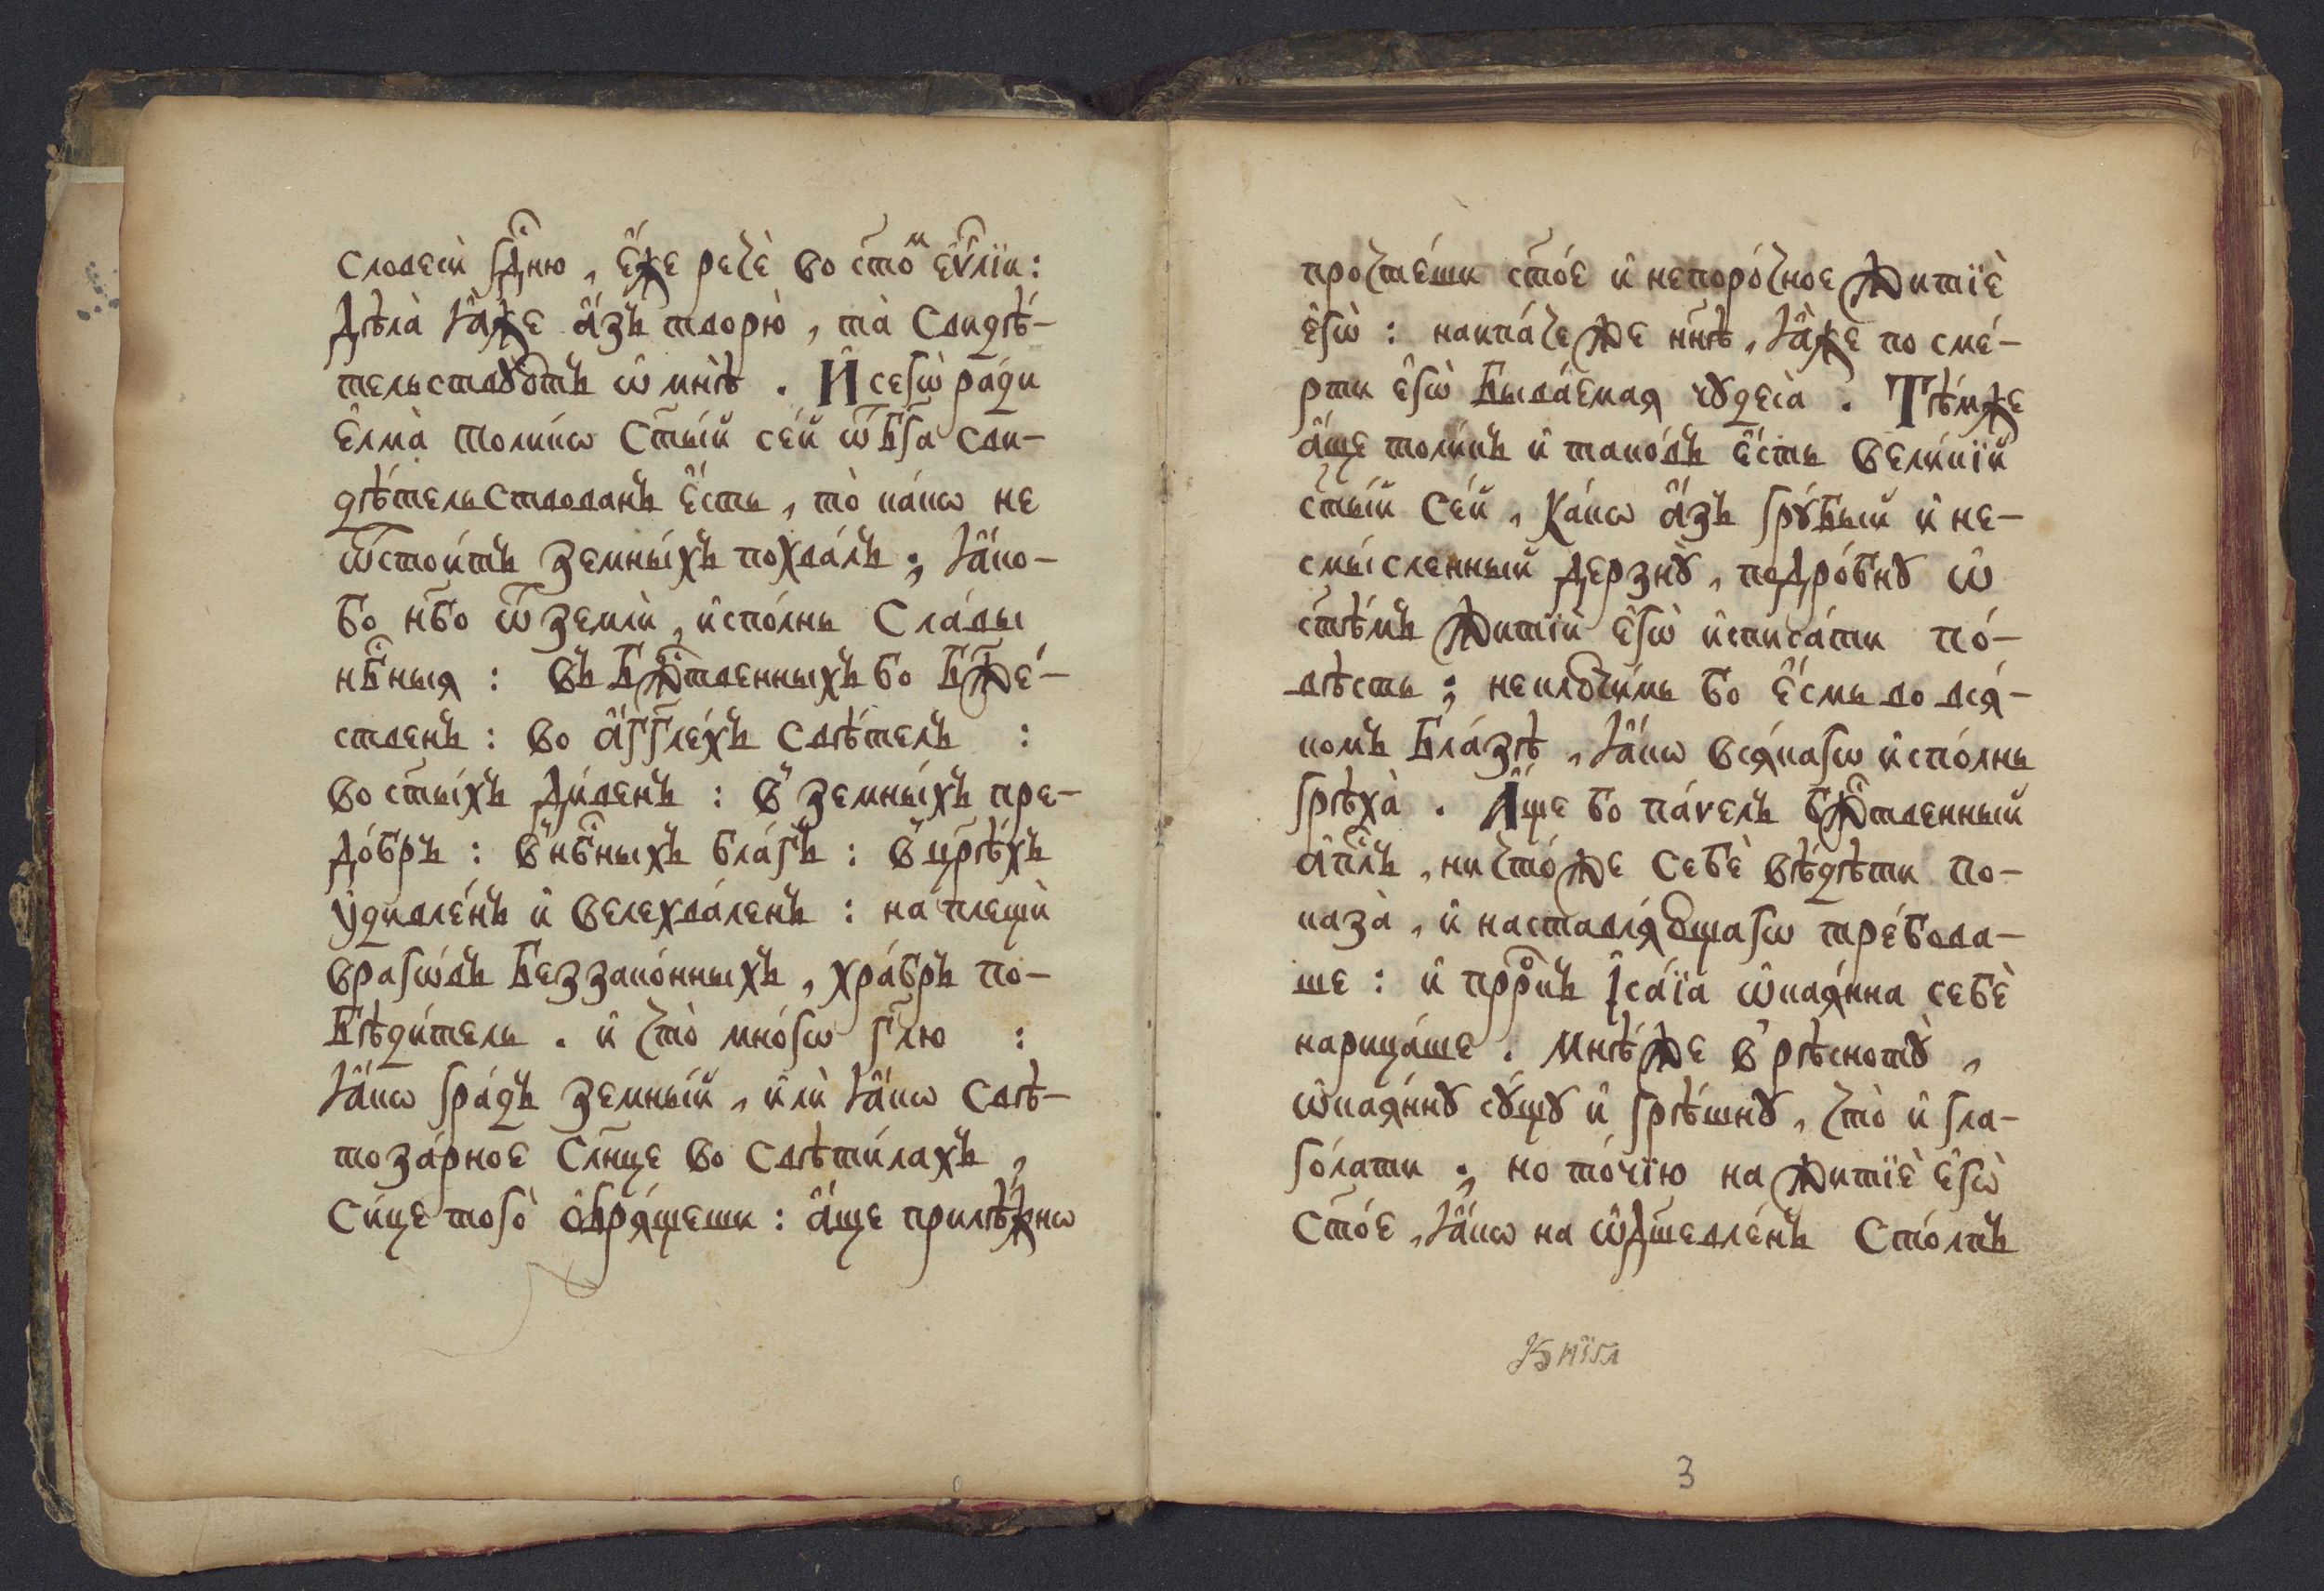 словеси гд҇ню, є҆́же речѐ во ст҃о́ м є҆ѵⷢ҇лїи:
Дѣла̀ ꙗ҆̀же а҆́зъ творю̀, та̀ свидѣ́-
тельствꙋютъ ѡ҆ мнѣ̀. И҆ сегѡ̀ ра́ди
є҆лма̀ толи́кѡ ст҃ы́й се́й ѿ бг҃а сви-
дѣ́тельствованъ є҆́сть, то̀ ка́кѡ не
ѿстои́тъ земны́хъ похва́лъ; ꙗ҆́ко-
бо нб҃о ѿ землѝ, и҆спо́лнь сла́вы
нбⷭ҇ныя: въ бж҇твенныхъ бо бж҃е́-
ственъ: во а҆́гг҃ле́хъ свѣ́телъ :
во ст҃ы́хъ ди́венъ: в̾ земны́хъ пре-
до́бръ: в̾ нбⷭ҇ныхъ бла́гъ: в̾ цр҃ѣ́хъ
ᲂу҆дивле́нъ и҆ велехва́ленъ: на плещѝ
врагѡ́въ беззако́нныхъ, хра́бръ по-
бѣди́тель. и҆ что̀ мно́гѡ гл҃ю :
ꙗ҆́кѡ гра́дъ земны́й, и҆лѝ ꙗ҆́кѡ свѣ-
тоза́рное сл҃нце во свѣти́лахъ,
си́це того̀ ѻ҆бря́щеши: а҆́ще прилѣ́жнѡ
прочте́ши ст҃о́е и҆ непоро́чное житїѐ
є҆гѡ̀: наипа́че же нн҃ѣ, ꙗ҆̀же по сме́-
рти є҆гѡ̀ быва́емая чꙋдеса̀. Тѣ́мже
а҆́ще толи́къ и҆ таково́въ є҆́сть вели́кїй
ст҃ы́й се́й, ка́кѡ а҆́зъ грꙋ́бый и҆ не-
смы́сленный дерзнꙋ̀, подро́бнꙋ ѡ҆
ст҃ѣ́мъ житїѝ є҆гѡ̀ и҆списа́ти по́-
вѣсть; неключи́мь бо є҆́смь во вся́-
комъ бла́зѣ, ꙗ҆́кѡ вся́кагѡ и҆спо́лнь
грѣха̀. А҆́ще бо па́ѵелъ бж҇твенный
а҆пⷭ҇лъ, ничто́же себѐ вѣ́дѣти по-
каза̀, и҆ наставля́ющагѡ тре́бова-
ше: и҆ прⷪ҇ро́къ І҆са́їа ѡ҆кая́нна себѐ
нарица́ше. мнѣ́же в̾ рѣснотꙋ̀,
ѡ҆кая́ннꙋ сꙋ́щꙋ и҆ грѣ́шнꙋ, что̀ и҆ гла-
го́лати; но то́чїю на житїѐ є҆гѡ̀
ст҃о́е, ꙗ҆́кѡ на ѡ҆дш҃евле́нъ сто́лпъ
Книга
3